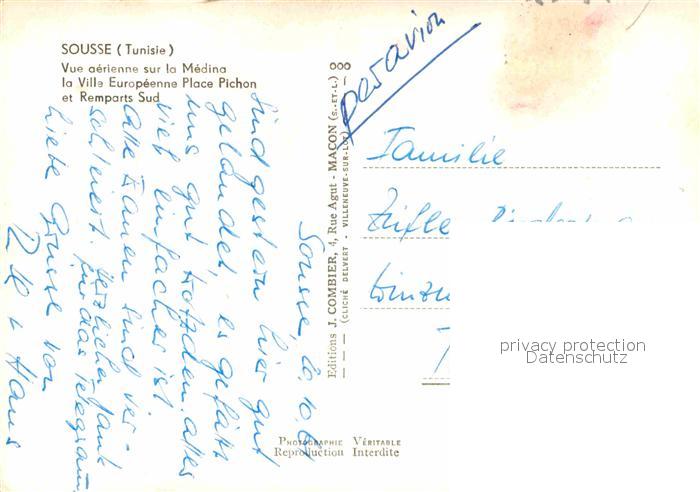 SOUSSE (Tunisie)
Vue aérienne sur la Médina
la Ville Européenne Place Pichon
et Remparts Sud
par avion
Sousse,
Sind gestern hier gut
gelandet, es gefällt
uns gut trotzdem alles
viel einfacher ist
alle Frauen sind ver-
schleiert. Herzlichen Dank
für das Telegramm
Liebe Grüsse von
+ Hans
Editions J. COMBIER, 4, Rue Agut - MACON (S.-ET-L.)
(CLICHÉ DELVERT - VILLENEUVE-SUR-LOT)
Familie
privacy protection
Datenschutz
PHOTOGRAPHIE VÉRITABLE
Reproduction Interdite